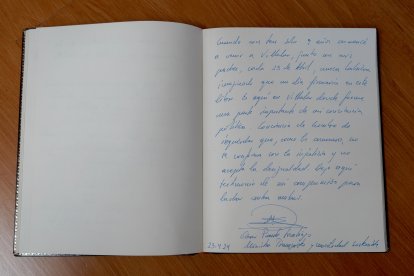 Cuando con tan solo 9 años comencé
a venir a Villalar, junto con mis
padres, cada 23 de Abril, nunca hubiera
imaginado que un día firmaría en este
libro. Es aquí en Villalar donde forme
una parte importante de mi conciencia
política. Conciencia de hombre de
izquierdas que, como los comuneros, no
se conforma con la injusticia y no
acepta la desigualdad. Dejo aquí
testimonio de mi compromiso para
luchar contra ambas.
23-4-24